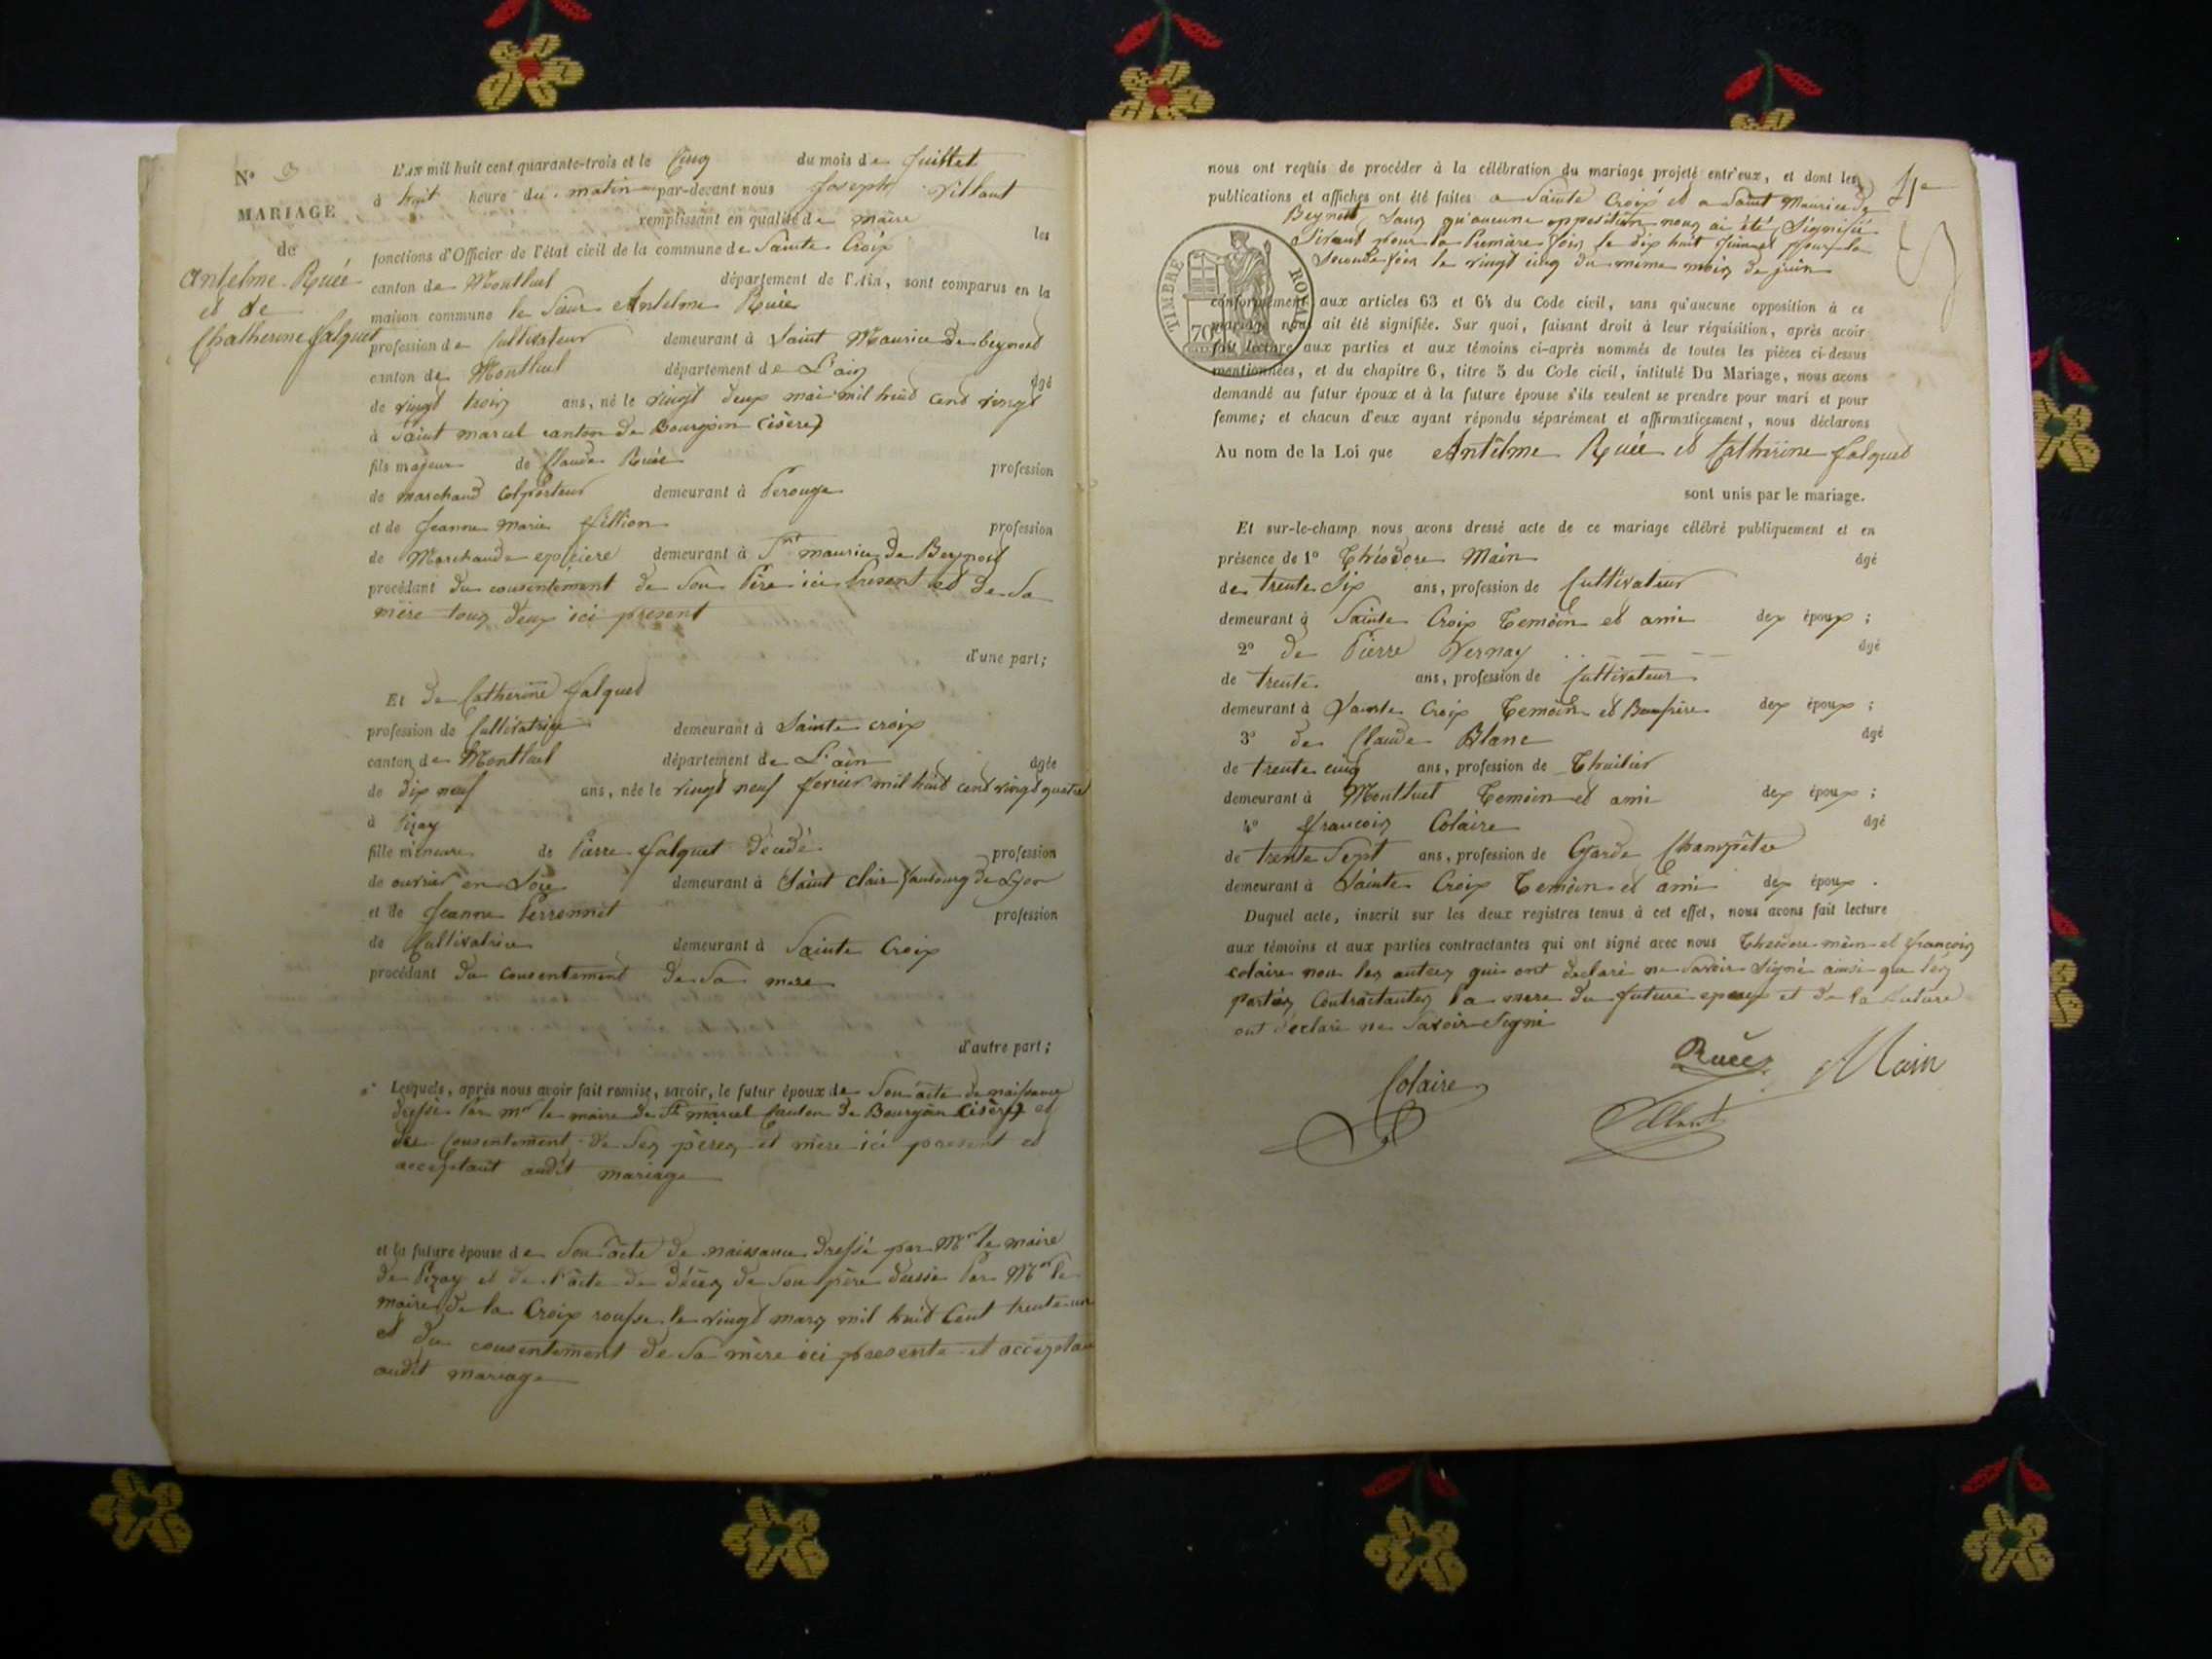 N° 3
MARIAGE
de
Antelme Ruée
et de
Chatherine Falquet
L'AN mil huit cent quarante-trois et le Cinq du mois de Juillet
à huit heure du matin par-devant nous Joseph
remplissant en qualité de maire les
fonctions d'Officier de l'état civil de la commune de Sainte Croix
canton de Montluel département de l'Ain, sont comparus en la
maison commune le Sieur Antelme Ruée
profession de Cultivateur demeurant à Saint Maurice de beynost
canton de Montluel département de L'ain âgé
de vingt trois ans, né le vingt deux mai mil huit cent vingt
à Saint marcel canton de Bourgoin (isère)
fils majeur de Claude Ruée profession
de marchand colporteur demeurant à Perouge
et de Jeanne Marie fillion profession
de Marchande epiciere demeurant à St maurice de Beynost
procédant du consentement de Son Père ici Present et de Sa
mère tous deux ici present
d'une part;
Et de Catherine falquet
profession de Cultivatrice demeurant à Sainte croix
canton de Montluel département de L'ain âgée
de dix neuf ans, née le vingt neuf fevrier mil huit cent vingt quatre
à Pizay
fille mineure de Pierre falquet décédé profession
de ouvrier en Soie demeurant à Saint Clair faubourg de Lyon
et de Jeanne Perronnet profession
de Cultivatrice demeurant à Sainte Croix
procédant du consentement de Sa mere
d'autre part;
Lesquels, après nous avoir fait remise, savoir, le futur époux de Son acte de naissance
dressé Par mr le maire de St marcel Canton de Bourgoin (isère) et
du Consentement de Ses pères et mère ici present et
acceptant audit mariage
et la future épouse de Son acte de naissance dressé par Mr le maire
de Pizay et de l'acte de décès de Son père Par Mr le
maire de la Croix rousse le vingt mars mil huit Cent trente un
et du consentement de Sa mère ici presente et
audit mariage
nous ont requis de procéder à la célébration du mariage projeté entr'eux, et dont les
publications et affiches ont été faites a Sainte Croix et a Saint Maurice de
Beynost Sans qu'aucune opposition nous ai été Signifié
Sivant pour la Premiere fois le dix huit Juin et pour la
Seconde fois le vingt cinq du meme mois de juin
TIMBRE ROYAL
70
conformément aux articles 63 et 64 du Code civil, sans qu'aucune opposition à ce
mariage nous ait été signifiée. Sur quoi, faisant droit à leur réquisition, après avoir
fait lecture aux parties et aux témoins ci-après nommés de toutes les pièces ci-dessus
mentionnées, et du chapitre 6, titre 5 du Code civil, intitulé Du Mariage, nous avons
demandé au futur époux et à la future épouse s'ils veulent se prendre pour mari et pour
femme; et chacun d'eux ayant répondu séparément et affirmativement, nous déclarons
Au nom de la Loi que Antelme Ruée et Catherine falquet
sont unis par le mariage.
Et sur-le-champ nous avons dressé acte de ce mariage célébré publiquement et en
présence de 1° Théodore Main âgé
de trente Six ans, profession de Cultivateur
demeurant à Sainte Croix Temoin et ami des époux;
2° de Pierre Vernay âgé
de trente ans, profession de Cultivateur
demeurant à Sainte Croix Temoin et Beaufrère des époux;
3° de Claude Blanc âgé
de trente cinq ans, profession de Thuilier
demeurant à Montluet Temoin et ami des époux;
4° françois Colaire âgé
de trente Sept ans, profession de Garde Champêtre
demeurant à Sainte Croix Temoin et ami des époux.
Duquel acte, inscrit sur les deux registres tenus à cet effet, nous avons fait lecture
aux témoins et aux parties contractantes qui ont signé avec nous Theodore main et françois
colaire non les autres qui ont declaré ne Savoir Signé ainsi que les
parties Contractantes la mere du future epoux et de la future
ont déclaré ne Savoir Signé
Colaire
Ruée
Main